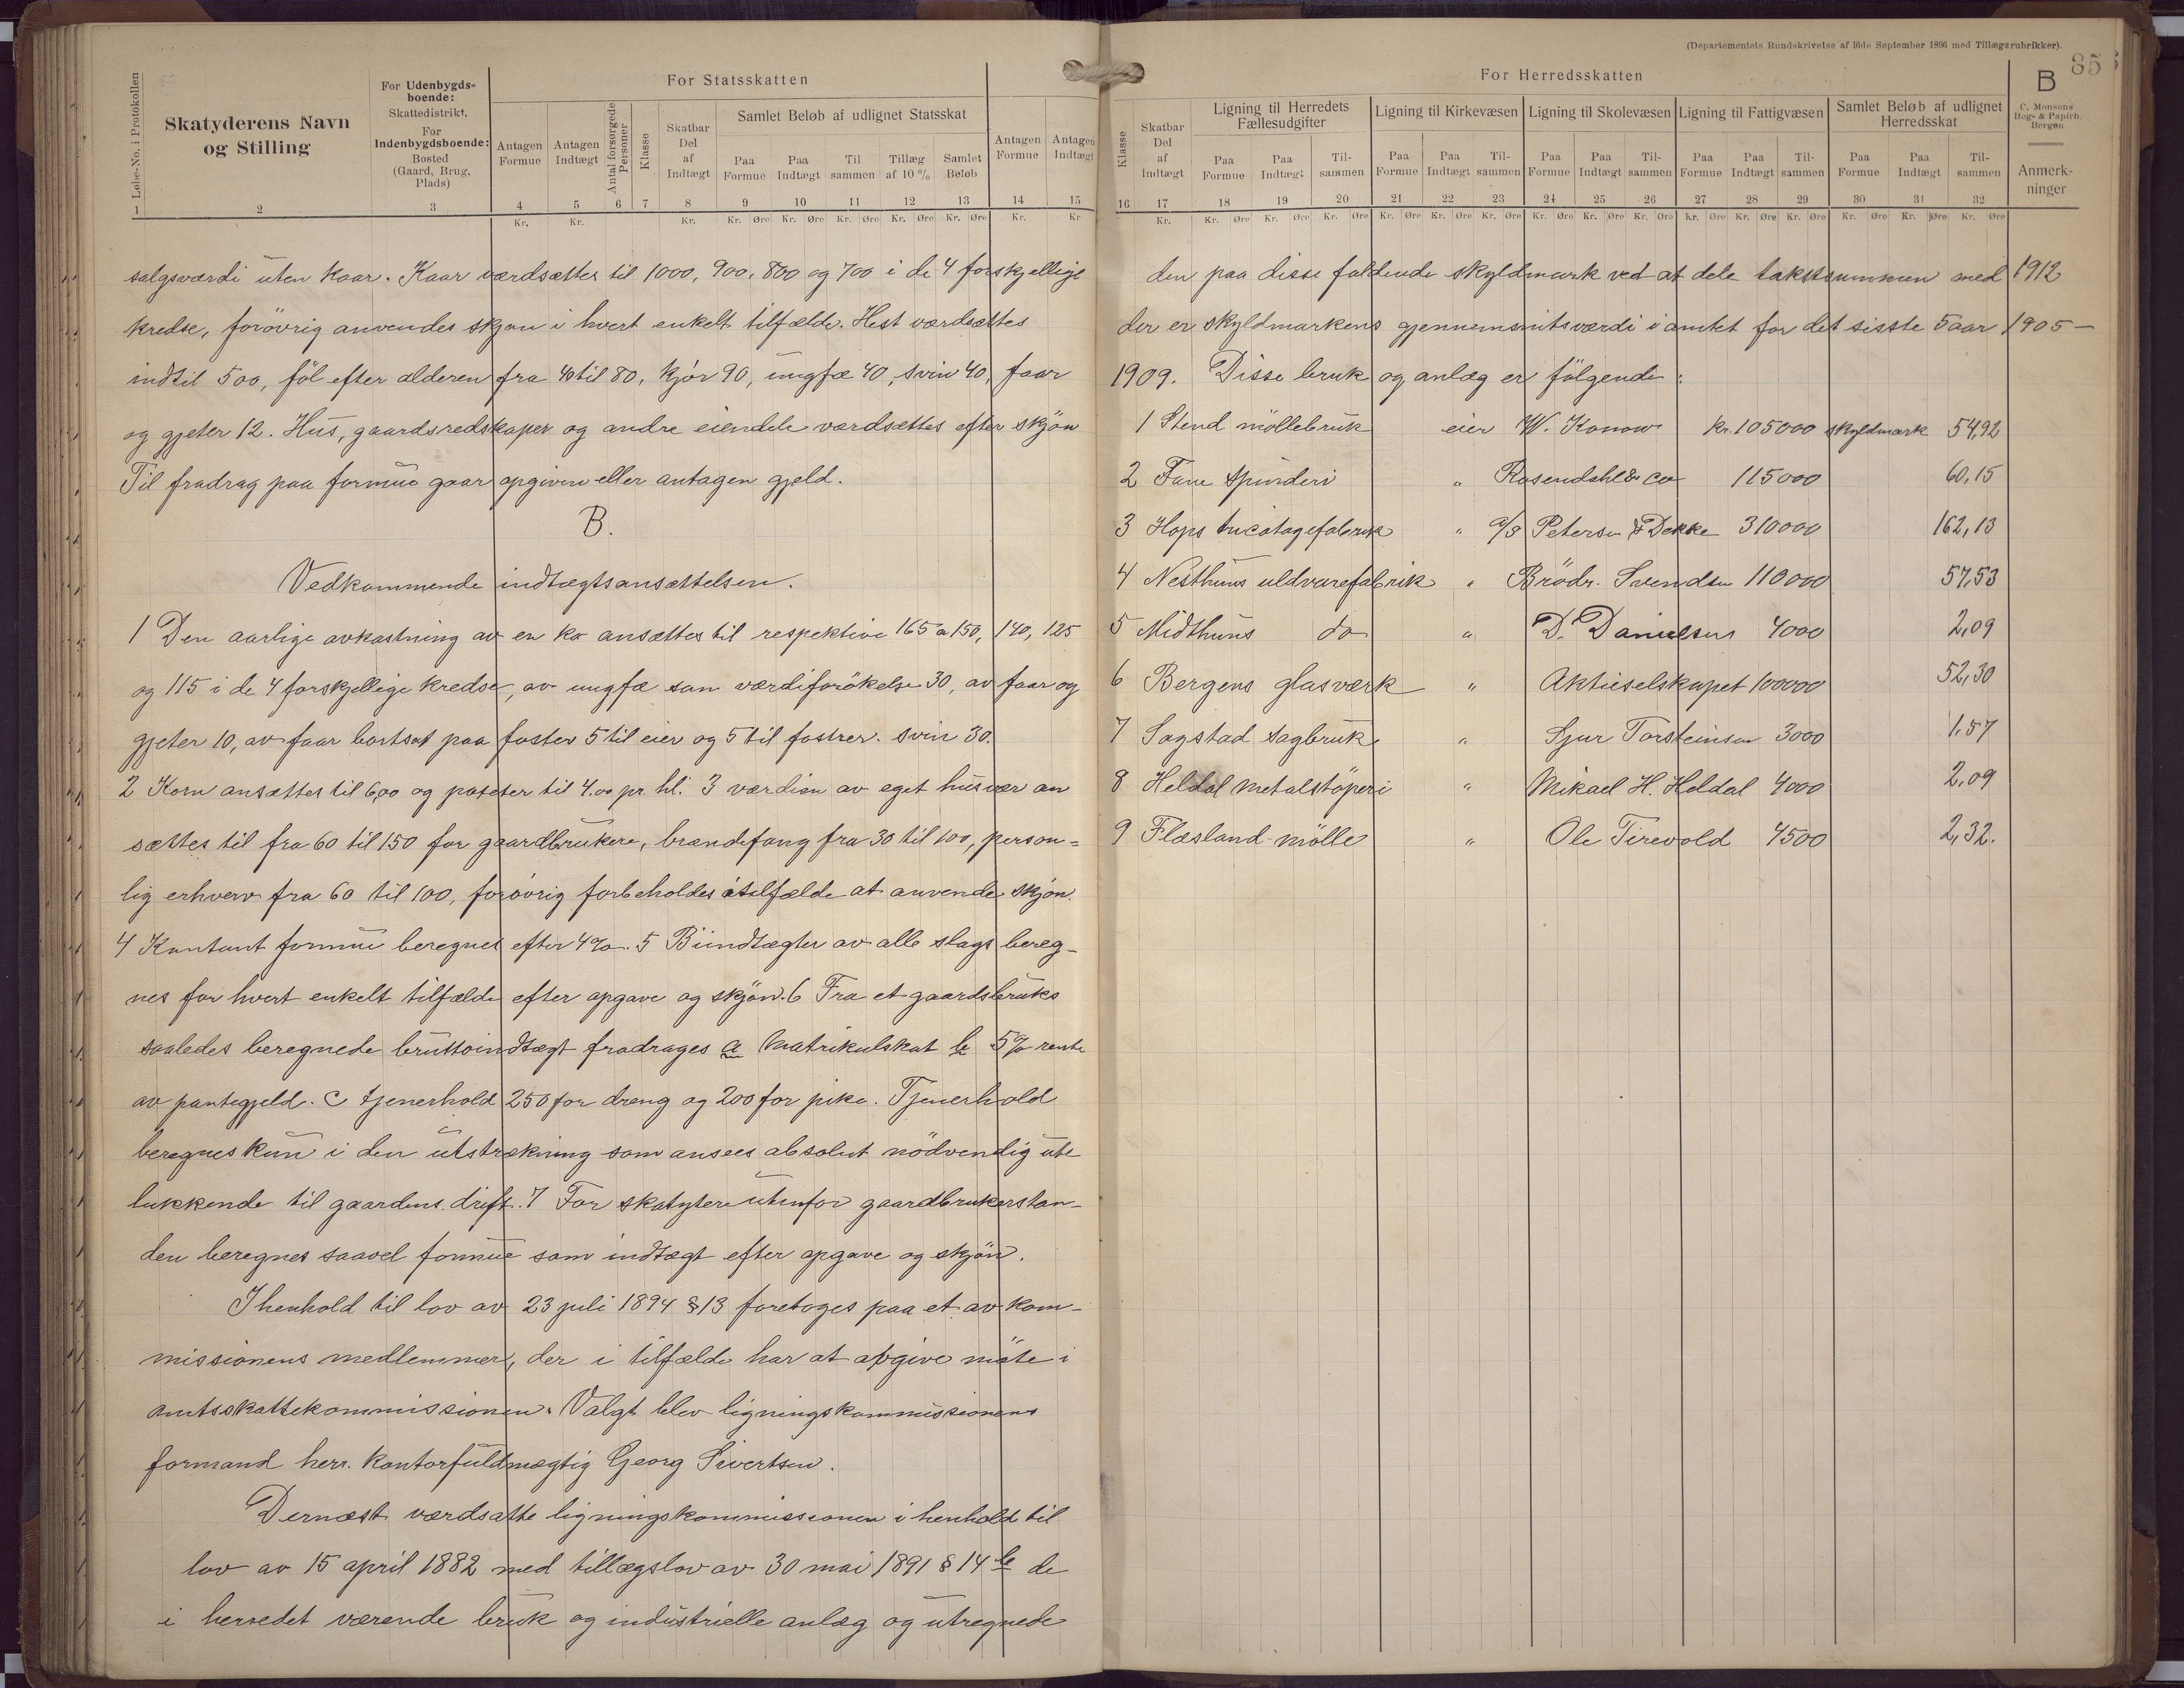 (Departementets Rundskrivelse af 16de September 1896 med Tillægsrubrikker).
85
For Statsskatten
For Herredsskatten
B
C. Monsens
Bog- & Papirh.
Bergen
Løbe-No. i Protokollen
Skatyderens Navn
og Stilling
For Udenbygds-
boende:
Skattedistrikt.
For
Indenbygdsboende:
Bosted
(Gaard, Brug,
Plads)
Antagen Formue
Antagen Indtægt
Antal forsørgede Personer
Klasse
Skatbar Del af Indtægt
Samlet Beløb af udlignet Statsskat
Paa Formue
Paa Indtægt
Til sammen
Tillæg af 10 %
Samlet Beløb
Antagen Formue
Antagen Indtægt
1 2 3 4 5 6 7 8 9 10 11 12 13 14 15
Kr. Kr. Kr. Kr. Øre Kr. Øre Kr. Øre Kr. Øre Kr. Øre Kr. Kr
Klasse
Skatbar Del af Indtægt
Ligning til Herredets Fællesudgifter
Ligning til Kirkevæsen
Ligning til Skolevæsen
Ligning til Fattigvæsen
Samlet Beløb af udlignet Herredsskat
Paa Formue Paa Indtægt Til-sammen
Paa Formue Paa Indtægt Til-sammen
Paa Formue Paa Indtægt Til-sammen
Paa Formue Paa Indtægt Til-sammen
Paa Formue Paa Indtægt Til-sammen
Anmerk-
ninger
16 17 18 19 20 21 22 23 24 25 26 27 28 29 30 31 32
Kr. Kr. Øre Kr. Øre Kr. Øre Kr. Øre Kr. Øre Kr. Øre Kr. Øre Kr. Øre Kr. Øre Kr. Øre Kr. Øre Kr. Øre Kr. Øre Kr. Øre Kr. Øre
salgsværdi uten kaar. Kaar værdsættes til 1000, 900, 800 og 700 i de 4 forskjellige
kredse, forövrig anvendes skjøn i hvert enkelt tilfælde. Hest værdsættes
indtil 500, föl efter alderen fra 40 til 80, kjör 90, ungfæ 40, svin 40, faar
og gjeter 12. Hus, gaardsredskaper og andre eiendele værdsættes efter skjön
Til fradrag paa formue gaar opgiven eller antagen gjeld.
B.
Vedkommende indtægtsansættelsen.
1 Den aarlige avkastning av en ko ansættes til respektive 165 a 150, 140, 125
og 115 i de 4 forskjellige kredse, av ungfæ som værdiforökelse 30, av faar og
gjeter 10, av faar bortsat paa foster 5 til eier og 5 til fostrer. svin 30.
2 Korn ansættes til 6,00 og poteter til 4.00 pr. hl. 3 værdien av eget husvær an
sættes til fra 60 til 150 for gaardbrukere, brændefang fra 30 til 100, person=
lig erhverv fra 60 til 100, forövrig forbeholdes i tilfælde at anvende skjön.
4 Kontant formue beregnes efter 4%. 5 Biindtægter av alle slags bereg-
nes for hvert enkelt tilfælde efter opgave og skjön. 6 Fra et gaardsbruks
saaledes beregnede bruttoindtægt fradrages a Matrikulskat b 5% rente
av pantegjeld. c tjenerhold 250 for dreng og 200 for pike. Tjenerhold
beregnes kun i den utstrækning som ansees absolut nödvendig ute
lukkende til gaardens drift. 7 For skatytere utenfor gaardbrukerstan-
den beregnes saavel formue som indtægt efter opgave og skjön.
I henhold til lov av 23 juli 1894 § 13 foretoges paa et av kom-
missionens medlemmer, der i tilfælde har at avgive möte i
amtsskattekommissionen. Valgt blev ligningskommissionens
formand herr. kontorfuldmægtig Georg Sivertsen.
Dernæst værdsatte ligningskommissionen i henhold til
lov av 15 april 1882 med tillægslov av 30 mai 1891 § 14 b de
i herredet værende bruk og industrielle anlæg og utregnede
den paa disse faldende skyldmark ved at dele takstsummen med 1912
der er skyldmarkens gjennemsnitsværdi i amtet for det sisste 5 aar 1905-
1909. Disse bruk og anlæg er fölgende:
1 Stend möllebruk eier W. Konow kr. 105000 skyldmark 54,92
2 Fane Spinderi " Rosendahl & Co 115000 60,15
3 Hops tricotagefabrik " A/S Petersen & Dekke 310000 162,13
4 Nesthuns uldvarefabrik " Brödr. Svendsen 110000 57,53
5 Midthuns do " D. Danielsen 4000 2,09
6 Bergens glasværk " Aktieselskapet 100000 52,30
7 Sagstad sagbruk " Sjur Torsteinsen 3000 1,57
8 Heldal metalstöperi " Mikael H. Heldal 4000 2,09
9 Flæsland mölle " Ole Tirevold 4500 2,32.